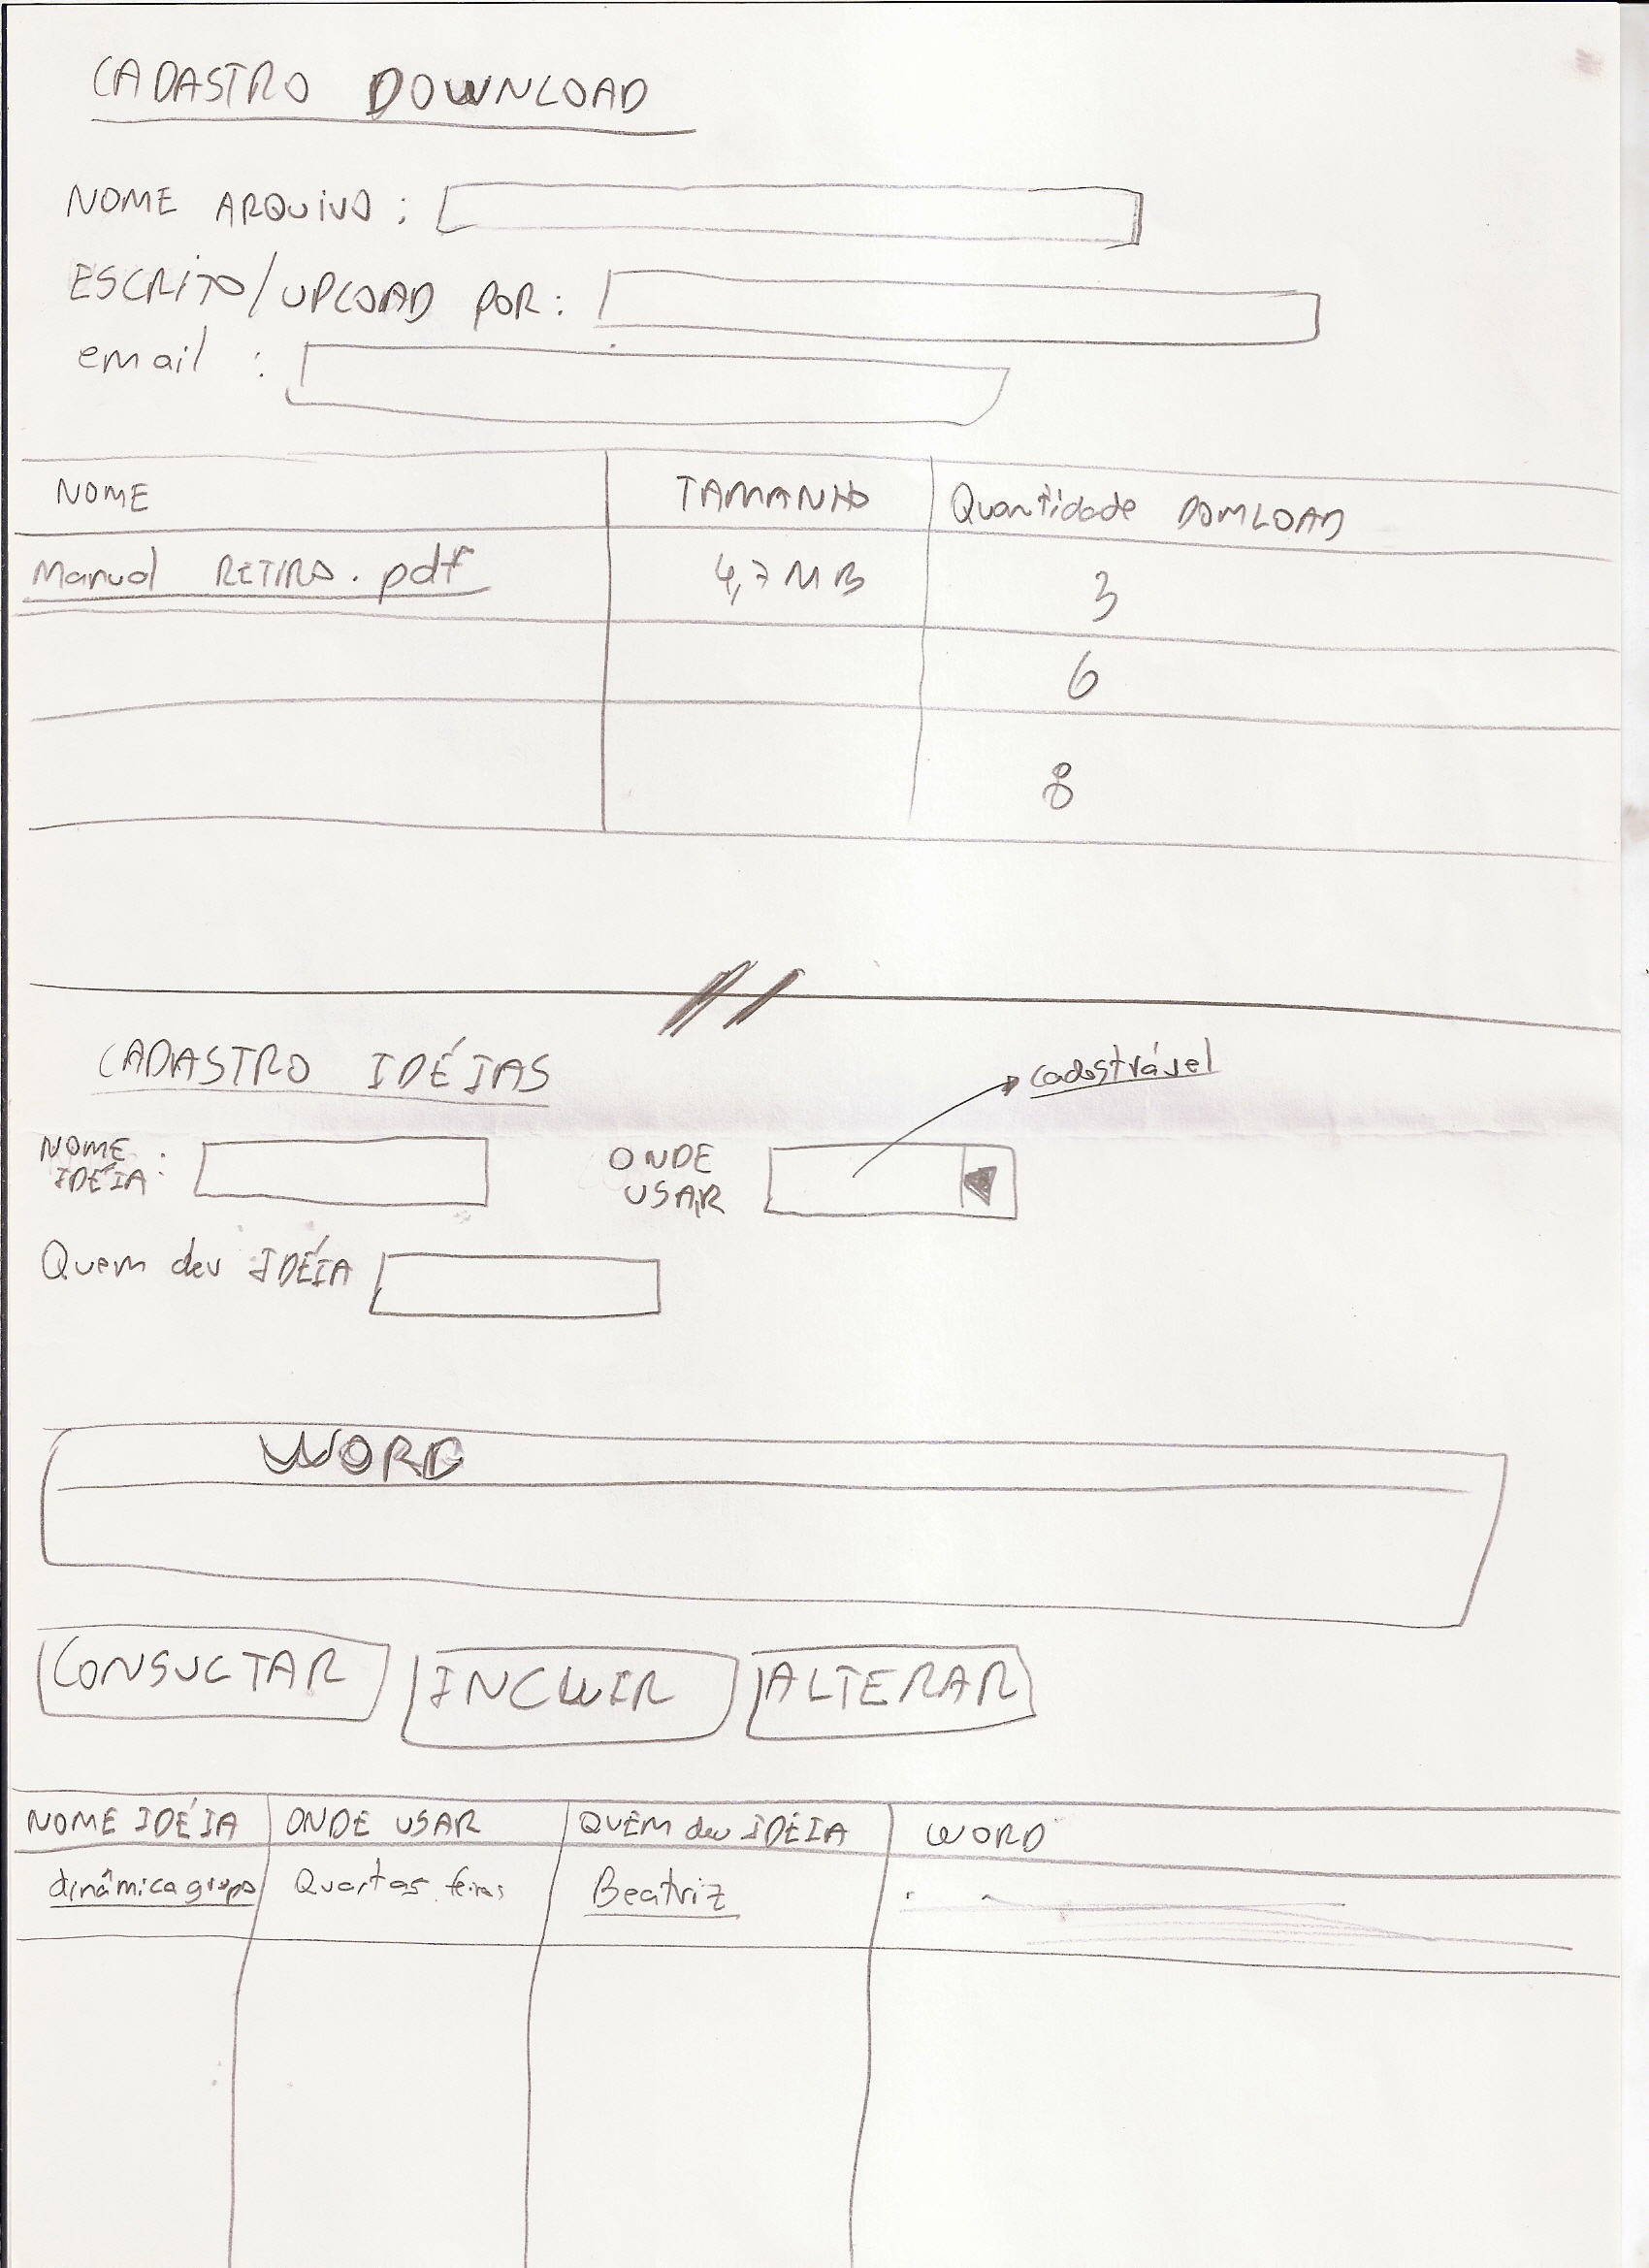 CADASTRO DOWNLOAD
NOME ARQUIVO :
ESCRITO/UPLOAD POR :
email :
NOME TAMANHO Quantidade DOMLOAD
Manual RETIRO.pdf 4,7 MB 3
6
8
CADASTRO IDÉIAS
cadastrável
NOME IDÉIA : ONDE USAR
Quem deu IDÉIA
WORD
CONSULTAR INCLUIR ALTERAR
NOME IDÉIA ONDE USAR QUEM deu IDÉIA WORD
dinâmica grupo Quartas feiras Beatriz